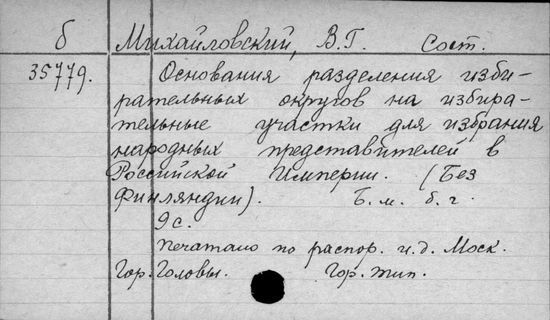 б Михайловский, В.Г. Сост.
35779. Основания разделения изби-
рательных округов на избира-
тельные участки для избрания
народных представителей в
Российской Империи. (Без
Финляндии). Б. м. б. г.
9 с.
Печатано по распор. и. д. Моск.
Гор. Головы. Гор. тип.